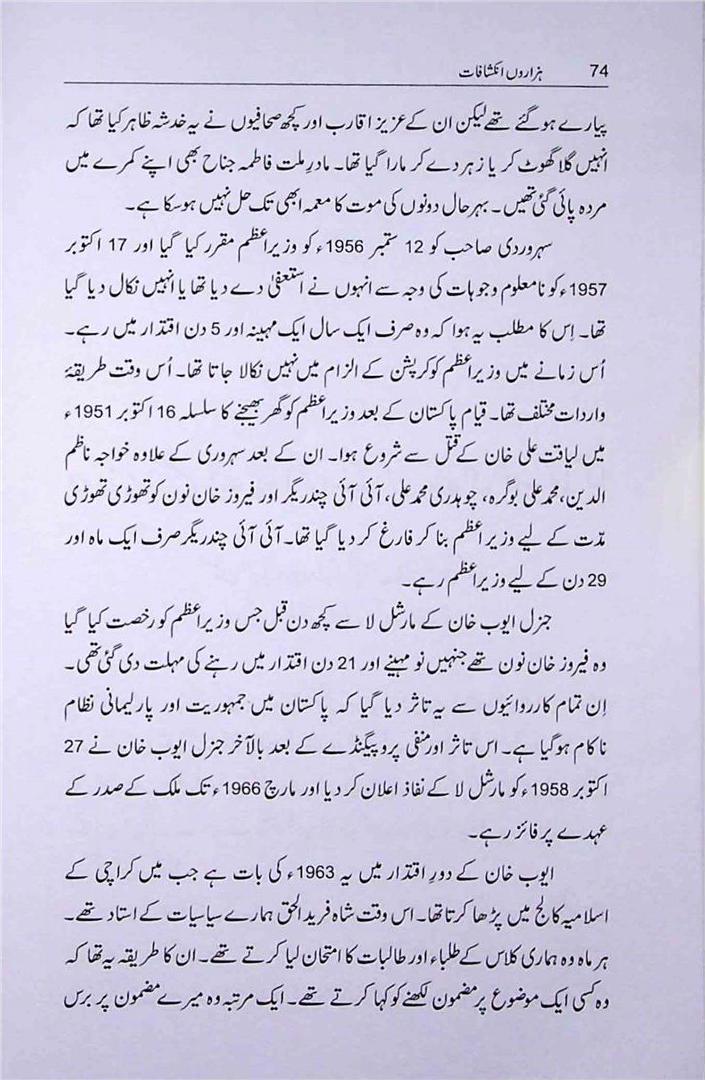 74 ہزاروں انکشافات
پیارے ہو گئے تھے لیکن ان کے عزیز اقارب اور کچھ صحافیوں نے یہ خدشہ ظاہر کیا تھا کہ
انہیں گلا گھوٹ کر یا زہر دے کر مارا گیا تھا۔ مادرِ ملت فاطمہ جناح بھی اپنے کمرے میں
مردہ پائی گئی تھیں۔ بہرحال دونوں کی موت کا معمہ ابھی تک حل نہیں ہو سکا ہے۔
سہروردی صاحب کو 12 ستمبر 1956ء کو وزیراعظم مقرر کیا گیا اور 17 اکتوبر
1957ء کو نامعلوم وجوہات کی وجہ سے انہوں نے استعفیٰ دے دیا تھا یا انہیں نکال دیا گیا
تھا۔ اِس کا مطلب یہ ہوا کہ وہ صرف ایک سال ایک مہینہ اور 5 دن اقتدار میں رہے۔
اُس زمانے میں وزیراعظم کو کرپشن کے الزام میں نہیں نکالا جاتا تھا۔ اُس وقت طریقۂ
واردات مختلف تھا۔ قیام پاکستان کے بعد وزیراعظم کو گھر بھیجنے کا سلسلہ 16 اکتوبر 1951ء
میں لیاقت علی خان کے قتل سے شروع ہوا۔ ان کے بعد سہروری کے علاوہ خواجہ ناظم
الدین، محمد علی بوگرہ، چوہدری محمد علی، آئی آئی چندریگر اور فیروز خان نون کو تھوڑی تھوڑی
مدّت کے لیے وزیراعظم بنا کر فارغ کر دیا گیا تھا۔ آئی آئی چندریگر صرف ایک ماہ اور
29 دن کے لیے وزیراعظم رہے۔
جنرل ایوب خان کے مارشل لا سے کچھ دن قبل جس وزیراعظم کو رخصت کیا گیا
وہ فیروز خان نون تھے جنہیں نو مہینے اور 21 دن اقتدار میں رہنے کی مہلت دی گئی تھی۔
اِن تمام کارروائیوں سے یہ تاثر دیا گیا کہ پاکستان میں جمہوریت اور پارلیمانی نظام
ناکام ہو گیا ہے۔ اس تاثر اور منفی پروپیگنڈے کے بعد بالآخر جنرل ایوب خان نے 27
اکتوبر 1958ء کو مارشل لا کے نفاذ اعلان کر دیا اور مارچ 1966ء تک ملک کے صدر کے
عہدے پر فائز رہے۔
ایوب خان کے دورِ اقتدار میں یہ 1963ء کی بات ہے جب میں کراچی کے
اسلامیہ کالج میں پڑھا کرتا تھا۔ اس وقت شاہ فرید الحق ہمارے سیاسیات کے استاد تھے۔
ہر ماہ وہ ہماری کلاس کے طلباء اور طالبات کا امتحان لیا کرتے تھے۔ ان کا طریقہ یہ تھا کہ
وہ کسی ایک موضوع پر مضمون لکھنے کو کہا کرتے تھے۔ ایک مرتبہ وہ میرے مضمون پر برس